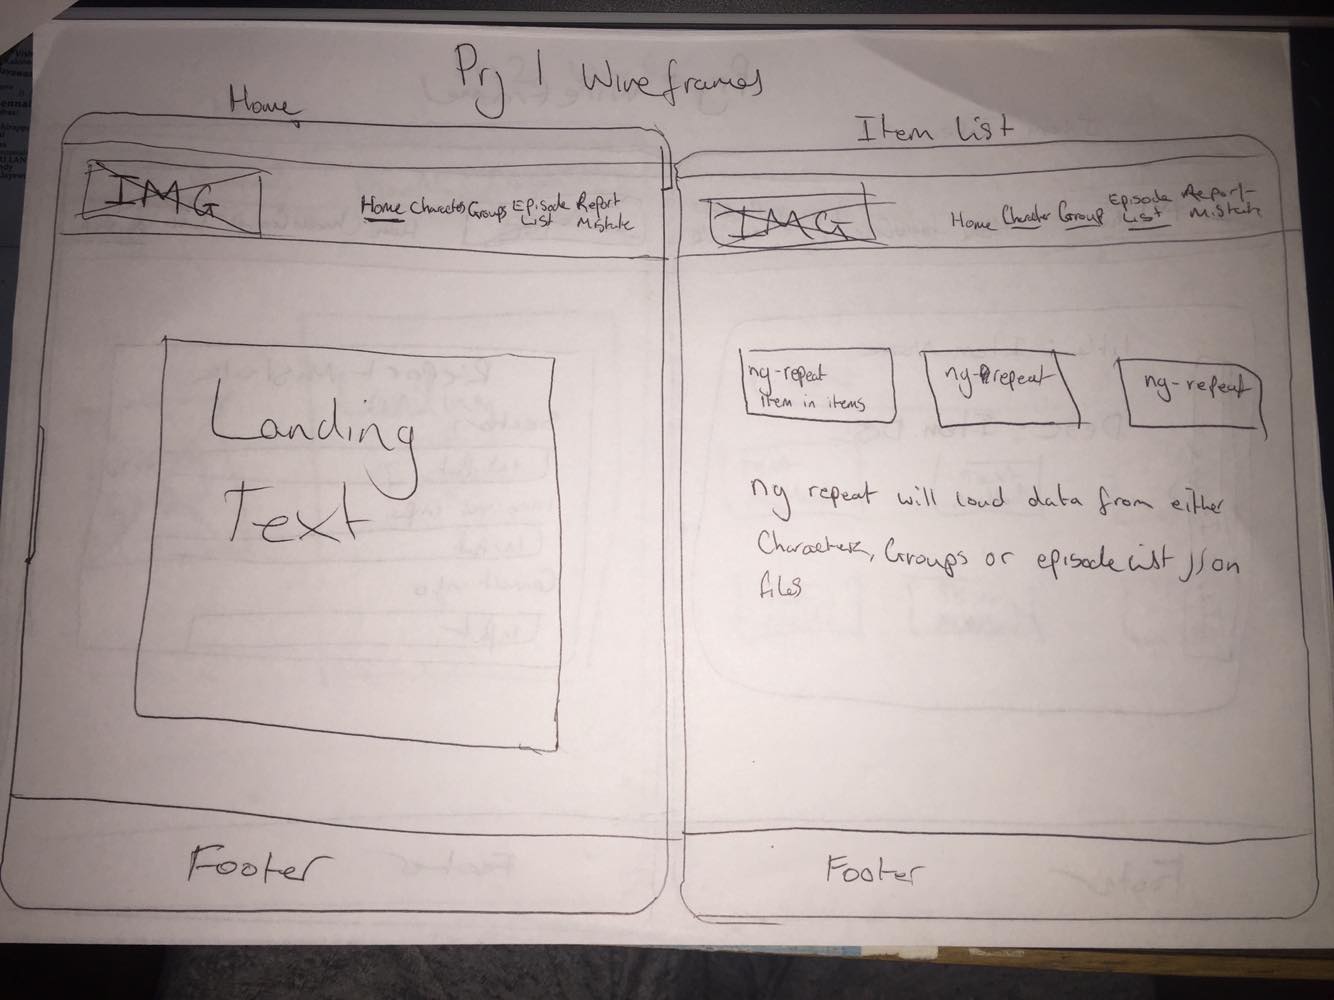 Prj 1 Wireframes
Home
IMG
Home Characters Groups Episode Report
List Mistake
Landing
Text
Footer
Item List
IMG
Home Character Group Episode Report
List Mistake
ng-repeat
item in items
ng-repeat
ng-repeat
ng repeat will load data from either
Characters, Groups or episode list json
files
Footer